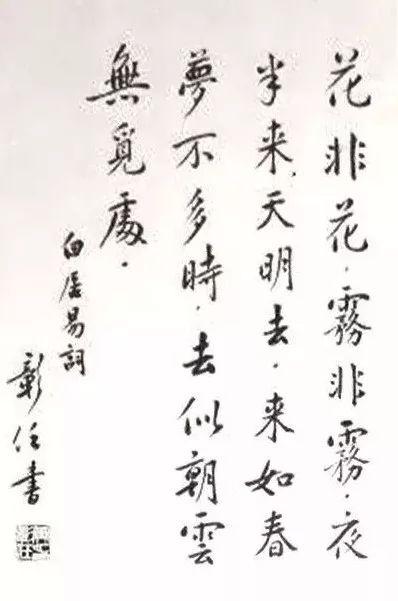 花非花．霧非霧．夜
半来．天明去．来如春
夢不多時．去似朝雲
無覓處．
白居易詞
彰任書